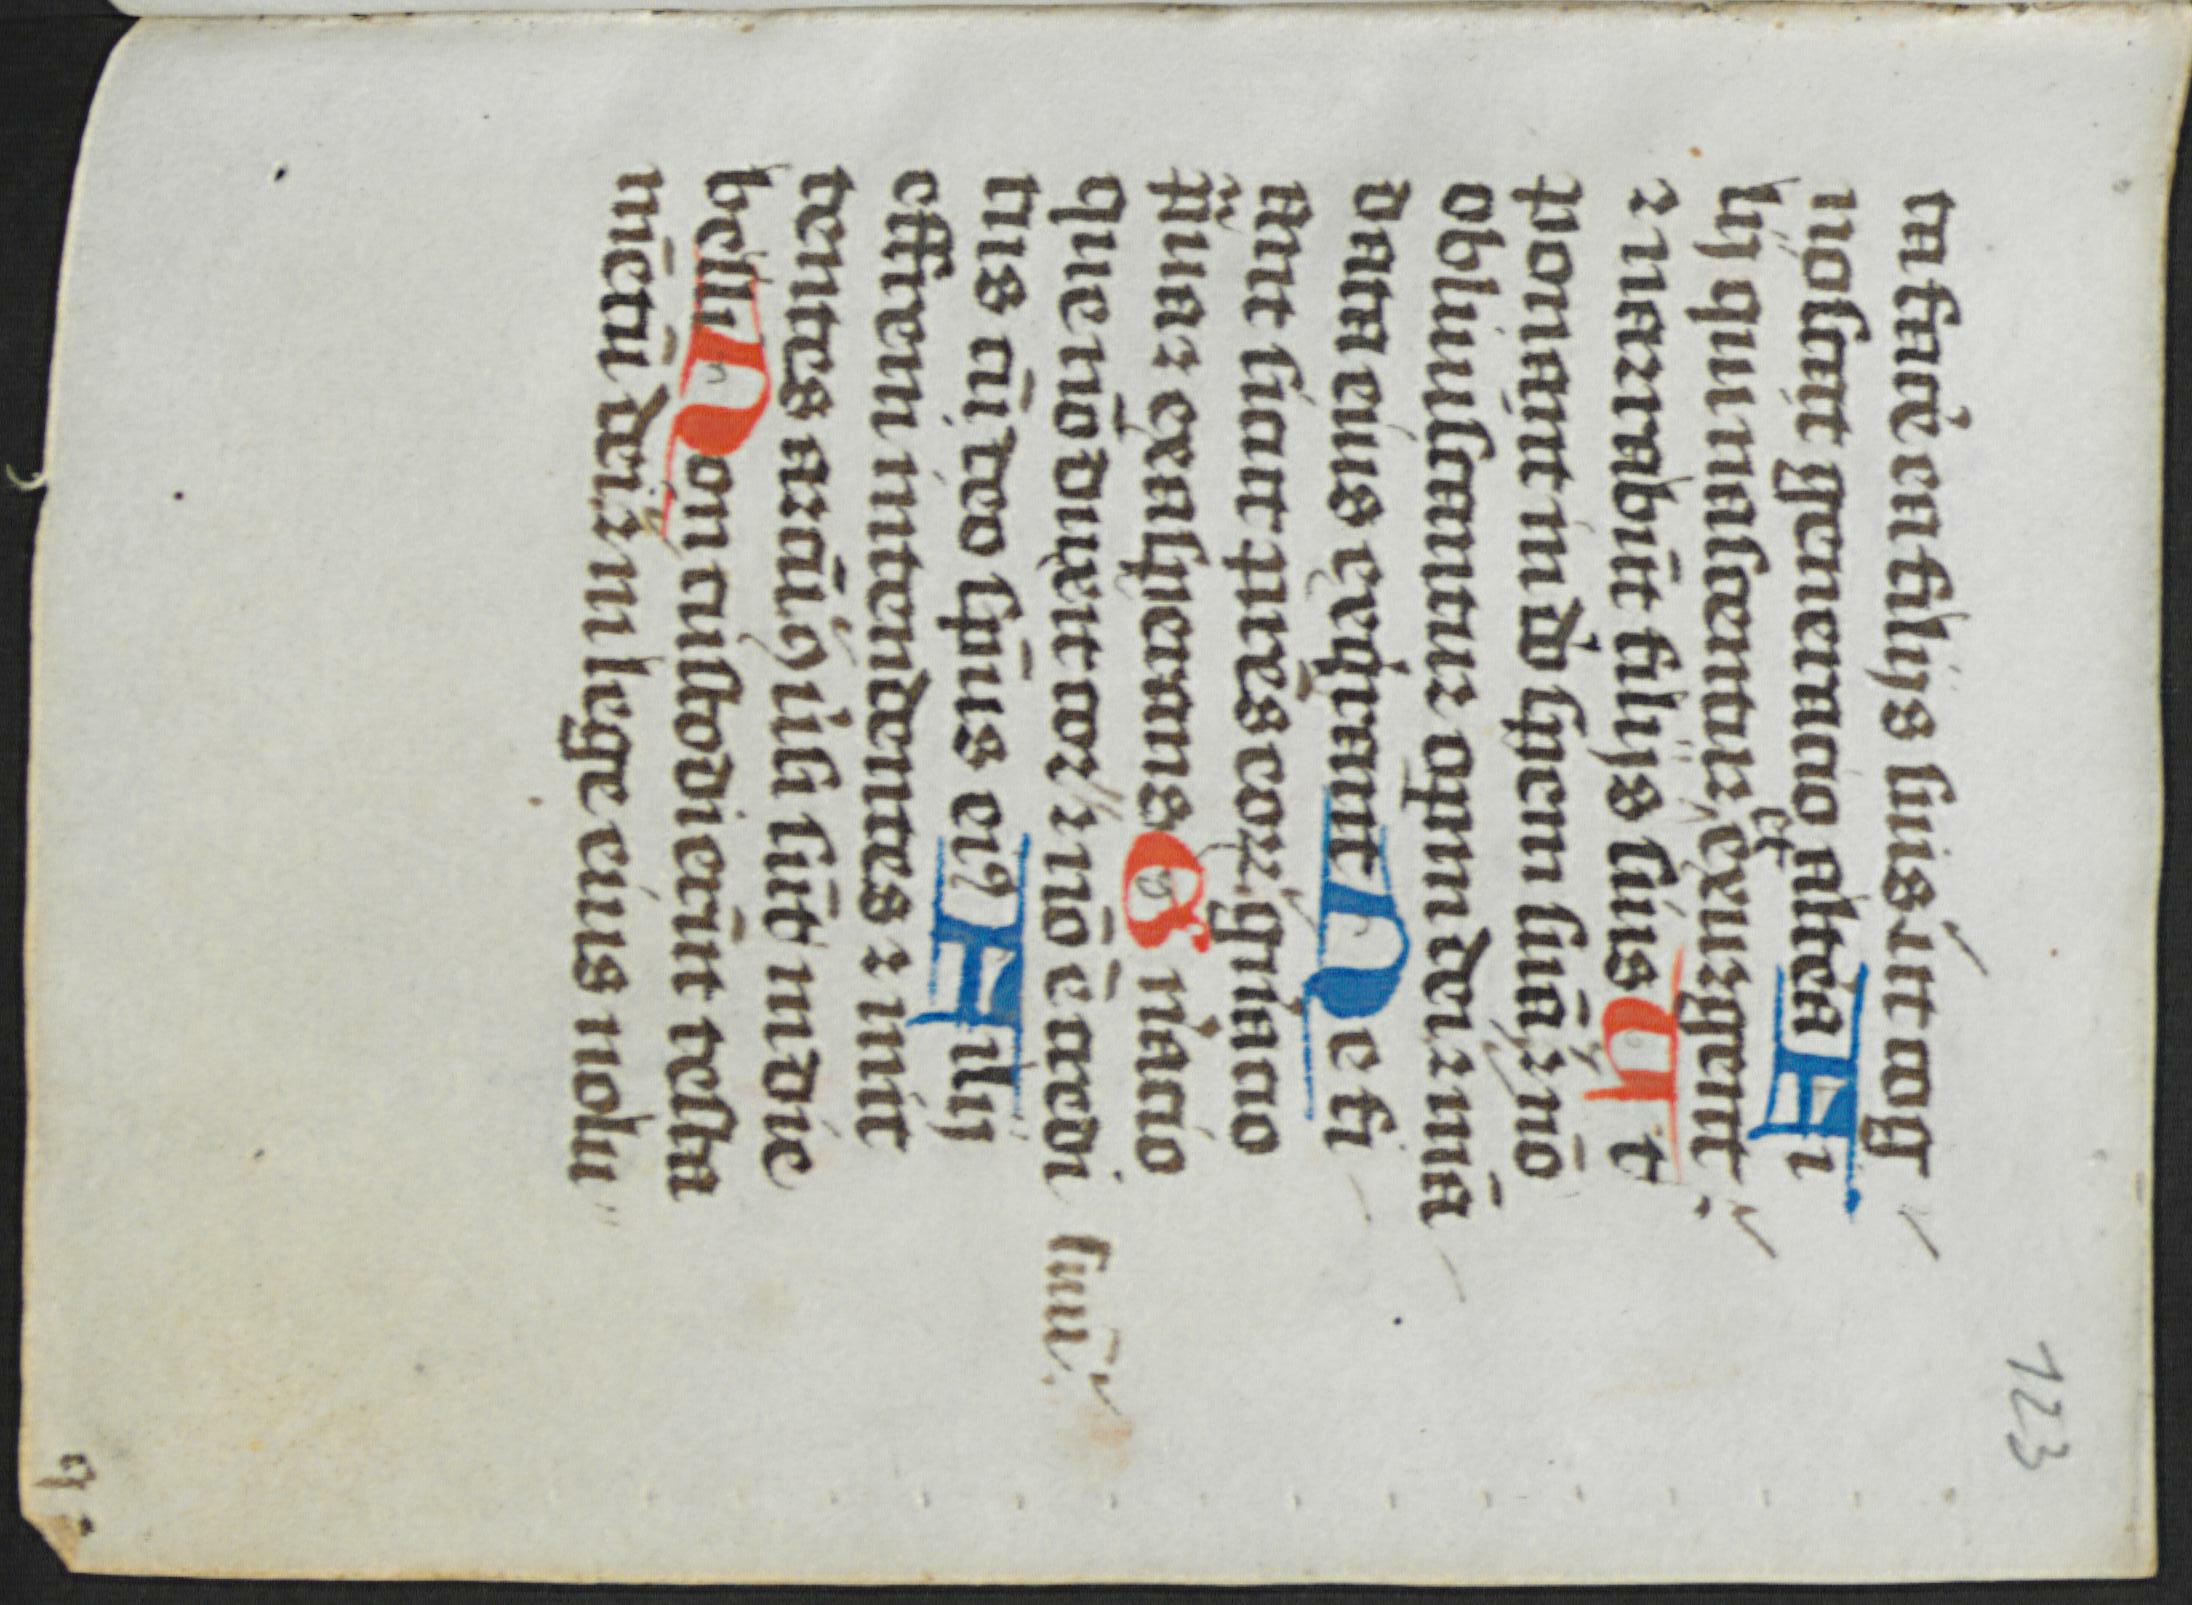 123
ta facē ea filijs suis: ut cog
noscat generacio altēa Fi
lij qui nascentur et exurgent:
⁊ narrabūt filijs suis Ut
ponant in deo spem suā: ⁊ nō
obliuiscantur operum dei: ⁊ mā
data eius exquirant Ne fi
ant sicut patres eorꝝ: gn̄acio
praua ⁊ exasperans Gn̄acio
que nō direxit cor suū: ⁊ nō ē credi
tus cū deo spūs eiꝰ Filij
effrem intendentes ⁊ mit
tentes arcū: cōuersi sūt in die
belli Non custodierūt testa
mētū dei: ⁊ in lege eius nolu